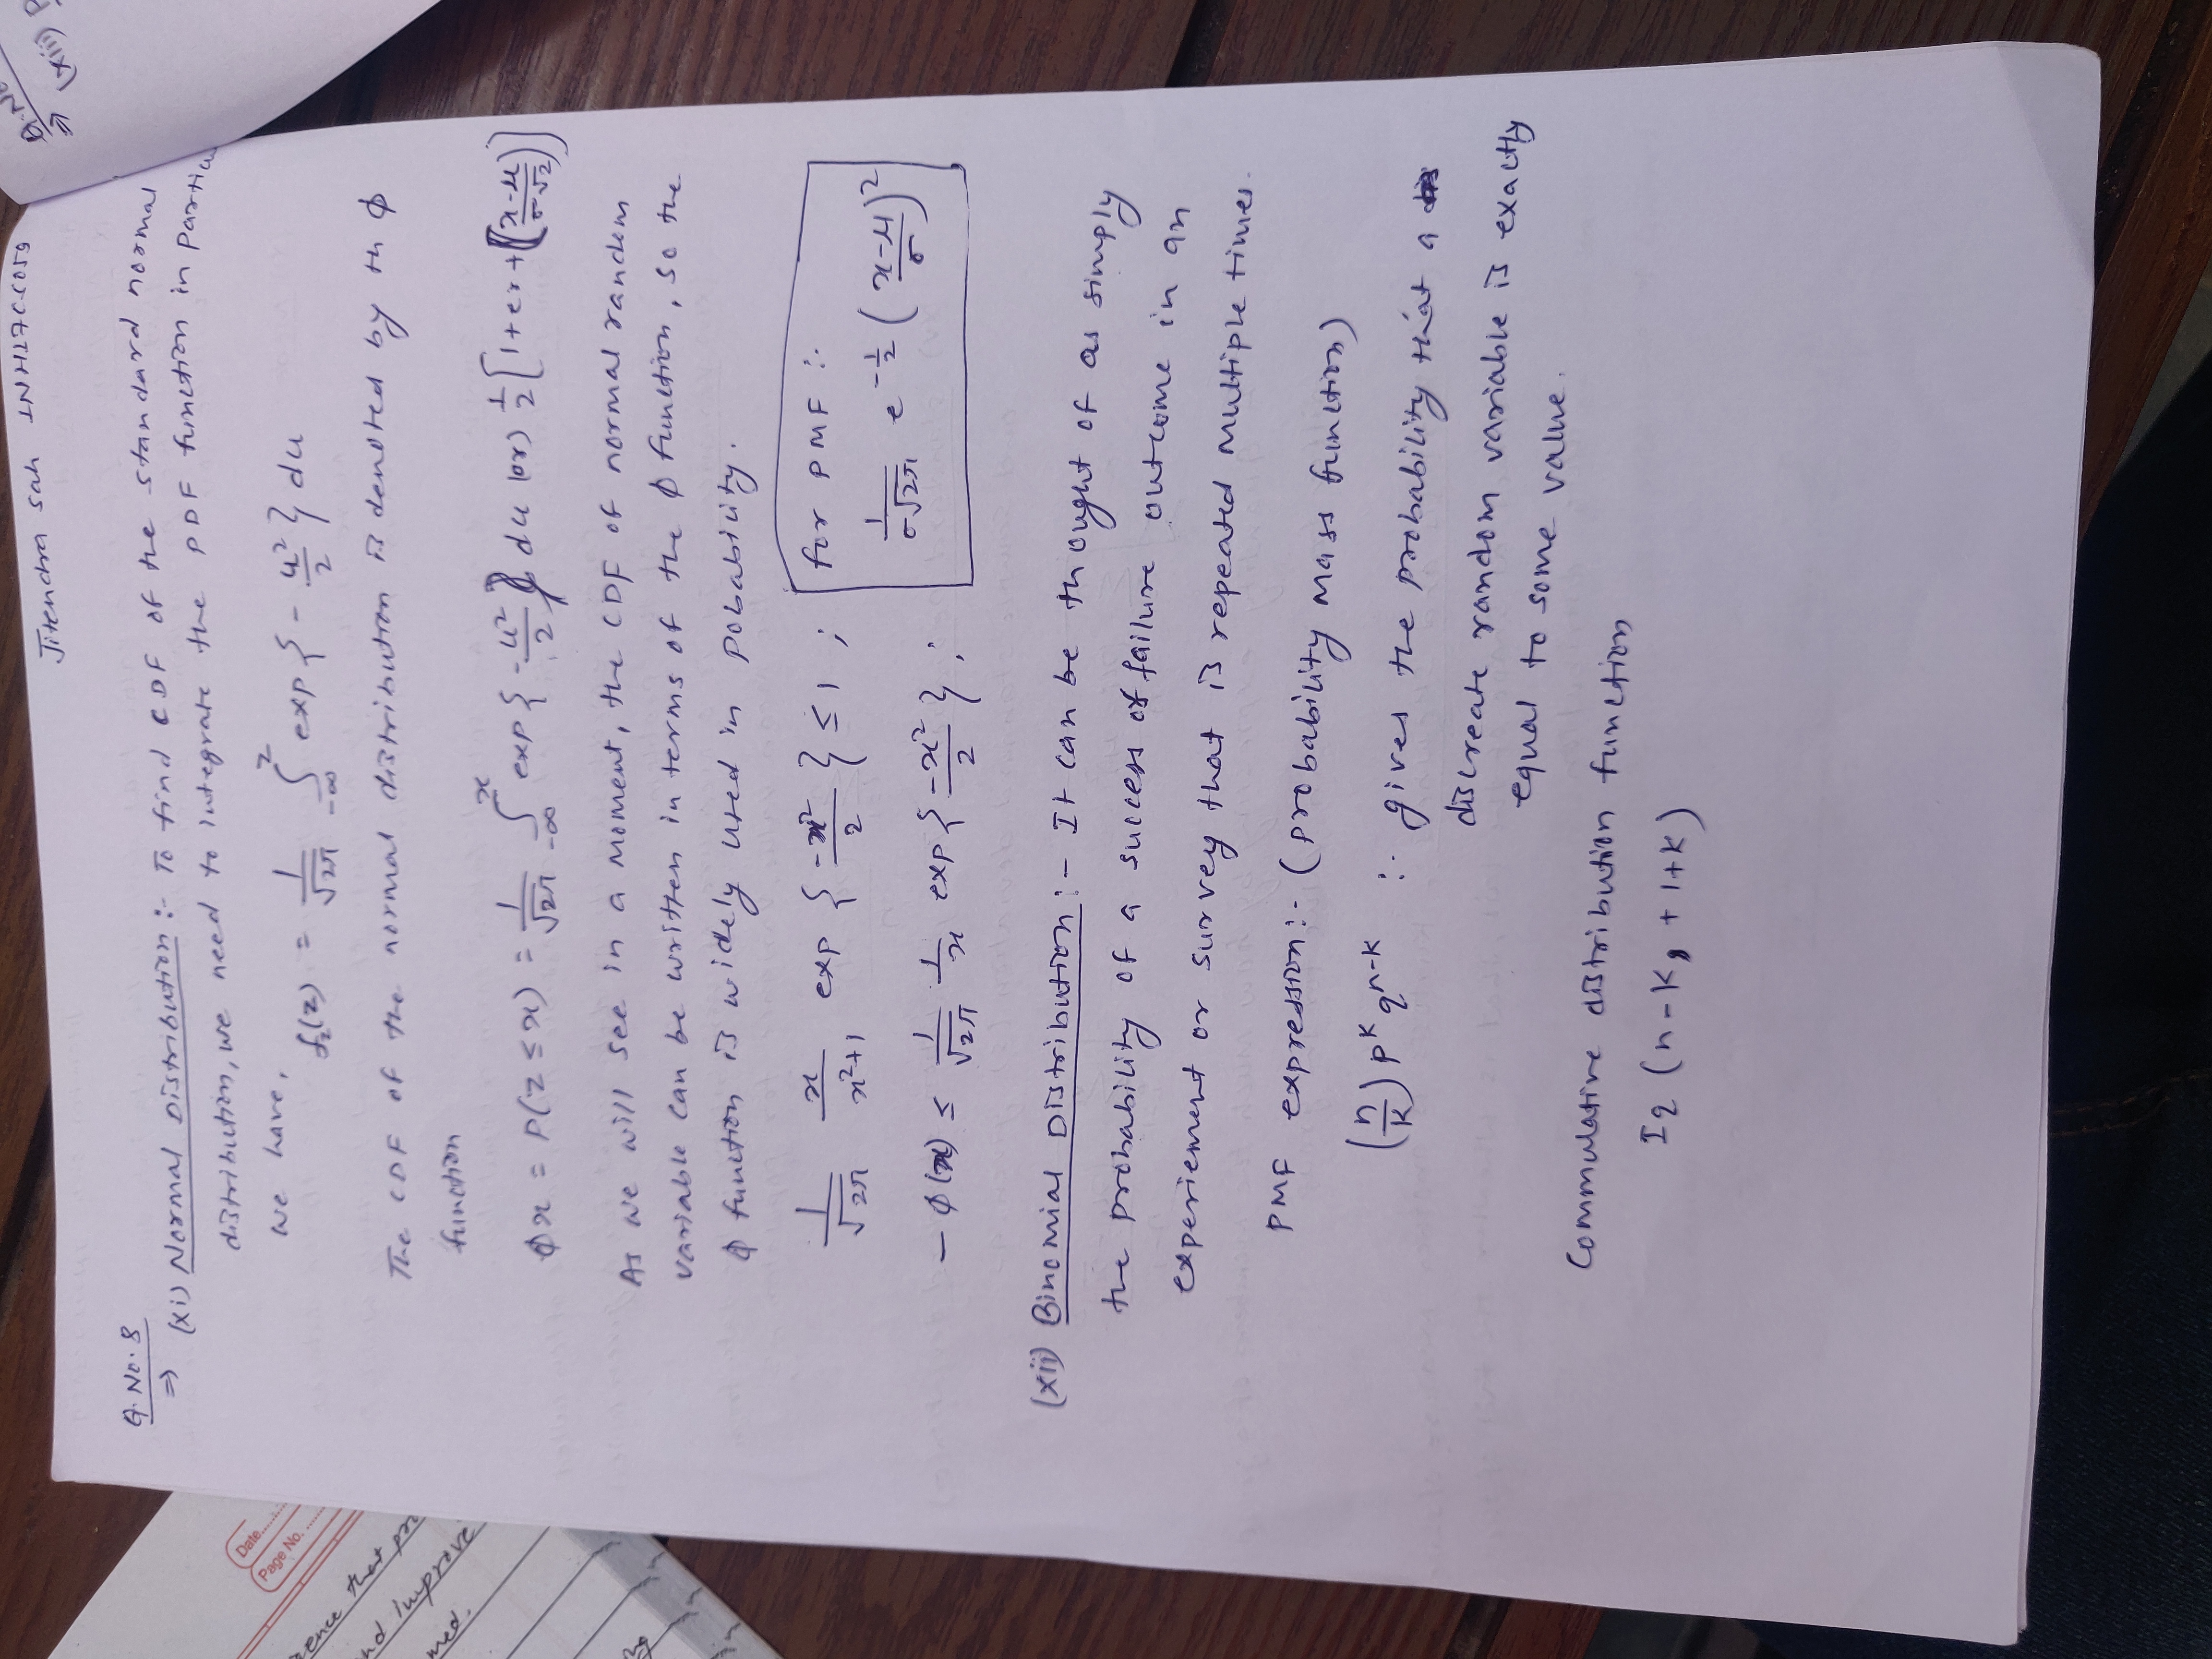 Jitendra Sah 1NH17CC059
Q. No. 8
⇒ (xi) Normal Distribution :- To find CDF of the standard normal
distribution, we need to integrate the PDF function in
we have,
f_z(z) = 1/√2π ∫_{-∞}^{z} exp { - u²/2 } du
The CDF of the normal distribution is denoted by th ϕ
function
ϕx = P(Z ≤ x) = 1/√2π ∫_{-∞}^{x} exp { -u²/2 } du (or) 1/2 [1+er+((x-μ)/(σ√2))]
As we will see in a moment, the CDF of normal random
variable can be written in terms of the ϕ function, so the
ϕ function is widely used in pobability.
1/√2π x/(x²+1) exp { -x²/2 } ≤ 1 ;
- ϕ(x) ≤ 1/√2π 1/x exp { -x²/2 } ;
for PMF :-
1/(σ√2π) e^{-1/2} ((x-μ)/σ)²
(xii) Binomial Distribution :- It can be thought of as simply
the probability of a success of failure outcome in an
experiement or survey that is repeated multiple times.
PMF expression :- (probability mass function)
(n/k) p^k q^{n-k} :- gives the probability that a
discreate random variable is exactly
equal to some value.
Commulative distribution function
Iq (n-k, + 1+k)
Date......
Page No.
that
nd improve
med.
Q. No
⇒ (xiii) P